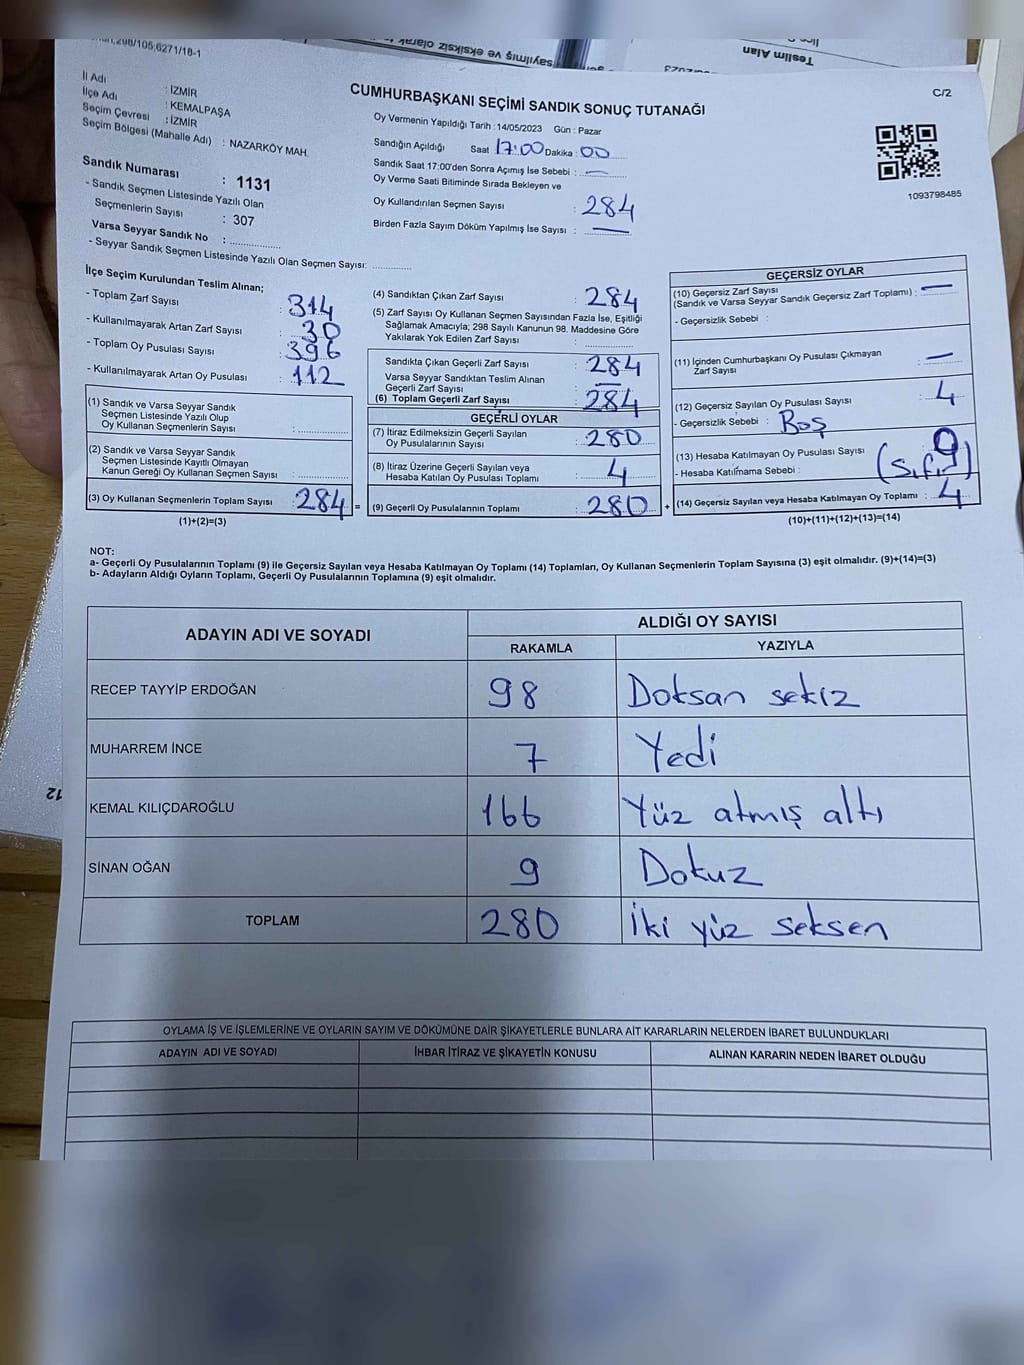 298/105;6271/18-1
sayılmış ve eksiksiz olarak
Teslim Alan
C/2
İl Adı : İZMİR
İlçe Adı : KEMALPAŞA
Seçim Çevresi : İZMİR
Seçim Bölgesi (Mahalle Adı) : NAZARKÖY MAH.
Sandık Numarası : 1131
- Sandık Seçmen Listesinde Yazılı Olan
Seçmenlerin Sayısı : 307
Varsa Seyyar Sandık No : ..............
- Seyyar Sandık Seçmen Listesinde Yazılı Olan Seçmen Sayısı: ............
CUMHURBAŞKANI SEÇİMİ SANDIK SONUÇ TUTANAĞI
Oy Vermenin Yapıldığı Tarih : 14/05/2023 Gün : Pazar
Sandığın Açıldığı Saat 17:00 Dakika : 00
Sandık Saat 17:00'den Sonra Açımış İse Sebebi : —
Oy Verme Saati Bitiminde Sırada Bekleyen ve
Oy Kullandırılan Seçmen Sayısı : 284
Birden Fazla Sayım Döküm Yapılmış İse Sayısı : —
1093798485
İlçe Seçim Kurulundan Teslim Alınan;
- Toplam Zarf Sayısı : 314
- Kullanılmayarak Artan Zarf Sayısı : 30
- Toplam Oy Pusulası Sayısı : 396
- Kullanılmayarak Artan Oy Pusulası : 112
(1) Sandık ve Varsa Seyyar Sandık
Seçmen Listesinde Yazılı Olup
Oy Kullanan Seçmenlerin Sayısı : ............
(2) Sandık ve Varsa Seyyar Sandık
Seçmen Listesinde Kayıtlı Olmayan
Kanun Gereği Oy Kullanan Seçmen Sayısı : ............
(3) Oy Kullanan Seçmenlerin Toplam Sayısı : 284 =
(1)+(2)=(3)
(4) Sandıktan Çıkan Zarf Sayısı : 284
(5) Zarf Sayısı Oy Kullanan Seçmen Sayısından Fazla İse, Eşitliği
Sağlamak Amacıyla; 298 Sayılı Kanunun 98. Maddesine Göre
Yakılarak Yok Edilen Zarf Sayısı : ............
Sandıkta Çıkan Geçerli Zarf Sayısı : 284
Varsa Seyyar Sandıktan Teslim Alınan
Geçerli Zarf Sayısı : —
(6) Toplam Geçerli Zarf Sayısı : 284
GEÇERLİ OYLAR
(7) İtiraz Edilmeksizin Geçerli Sayılan
Oy Pusulalarının Sayısı : 280
(8) İtiraz Üzerine Geçerli Sayılan veya
Hesaba Katılan Oy Pusulası Toplamı : 4
(9) Geçerli Oy Pusulalarının Toplamı : 280 +
GEÇERSİZ OYLAR
(10) Geçersiz Zarf Sayısı
(Sandık ve Varsa Seyyar Sandık Geçersiz Zarf Toplamı) : —
- Geçersizlik Sebebi :
(11) İçinden Cumhurbaşkanı Oy Pusulası Çıkmayan
Zarf Sayısı : —
(12) Geçersiz Sayılan Oy Pusulası Sayısı : 4
- Geçersizlik Sebebi : Boş
(13) Hesaba Katılmayan Oy Pusulası Sayısı : 0
- Hesaba Katılmama Sebebi :
(14) Geçersiz Sayılan veya Hesaba Katılmayan Oy Toplamı : 4
(10)+(11)+(12)+(13)=(14)
NOT:
a- Geçerli Oy Pusulalarının Toplamı (9) ile Geçersiz Sayılan veya Hesaba Katılmayan Oy Toplamı (14) Toplamları, Oy Kullanan Seçmenlerin Toplam Sayısına (3) eşit olmalıdır. (9)+(14)=(3)
b- Adayların Aldığı Oyların Toplamı, Geçerli Oy Pusulalarının Toplamına (9) eşit olmalıdır.
ADAYIN ADI VE SOYADI ALDIĞI OY SAYISI
RAKAMLA YAZIYLA
RECEP TAYYİP ERDOĞAN 98 Doksan sekiz
MUHARREM İNCE 7 Yedi
KEMAL KILIÇDAROĞLU 166 Yüz atmış altı
SİNAN OĞAN 9 Dokuz
TOPLAM 280 İki yüz seksen
12
OYLAMA İŞ VE İŞLEMLERİNE VE OYLARIN SAYIM VE DÖKÜMÜNE DAİR ŞİKAYETLERLE BUNLARA AİT KARARLARIN NELERDEN İBARET BULUNDUKLARI
ADAYIN ADI VE SOYADI İHBAR İTİRAZ VE ŞİKAYETİN KONUSU ALINAN KARARIN NEDEN İBARET OLDUĞU